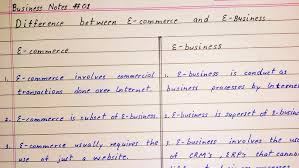 Business Notes #01
Difference between E-commerce and E-Business.
E-commerce
E-business
1. E-commerce involves commercial
transactions done over Internet.
1. E-business is conduct as
business processes by Internet
2. E-commerce is subset of E-business.
2. E-business is superset of E-busine
3. E-commerce usually requires the
use of just a website.
3. E-business involves the use
of CRM's, ERP's that